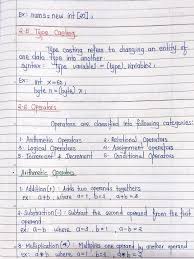 Ex: nums = new int [20];
2.5 Type Casting
Type casting refers to changing an entity of
one data type into another.
syntax: (Type variable1) = (type) Variable2;
Ex:
int x = 65;
byte n = (byte) x;
2.6 Operators
Operators are classified into following categories:
1. Arithmetic Operators 2. Relational Operators
3. Logical Operators 4. Assignment Operators
5. Increment & Decrement 6. Conditional Operators
• Arithmetic Operators
1. Addition(+) : Adds two operands together
ex: a+b where a=1, b=2
2. Subtraction(-) : Subtract the second operand from the first
operand. ex: a-b where a=2, b=1
3. Multiplication(*) : Multiplies one operand by another operand
ex: a*b where a=1 b=2 a*b=2